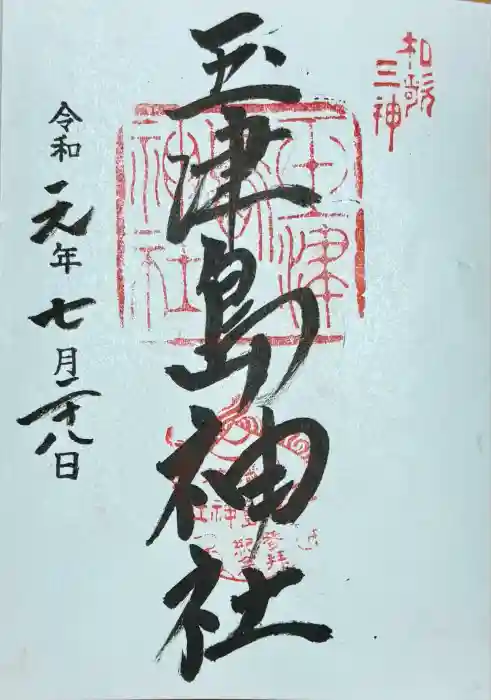 和歌
三神
玉津島神社
令和元年七月二十八日
玉津
島
神社